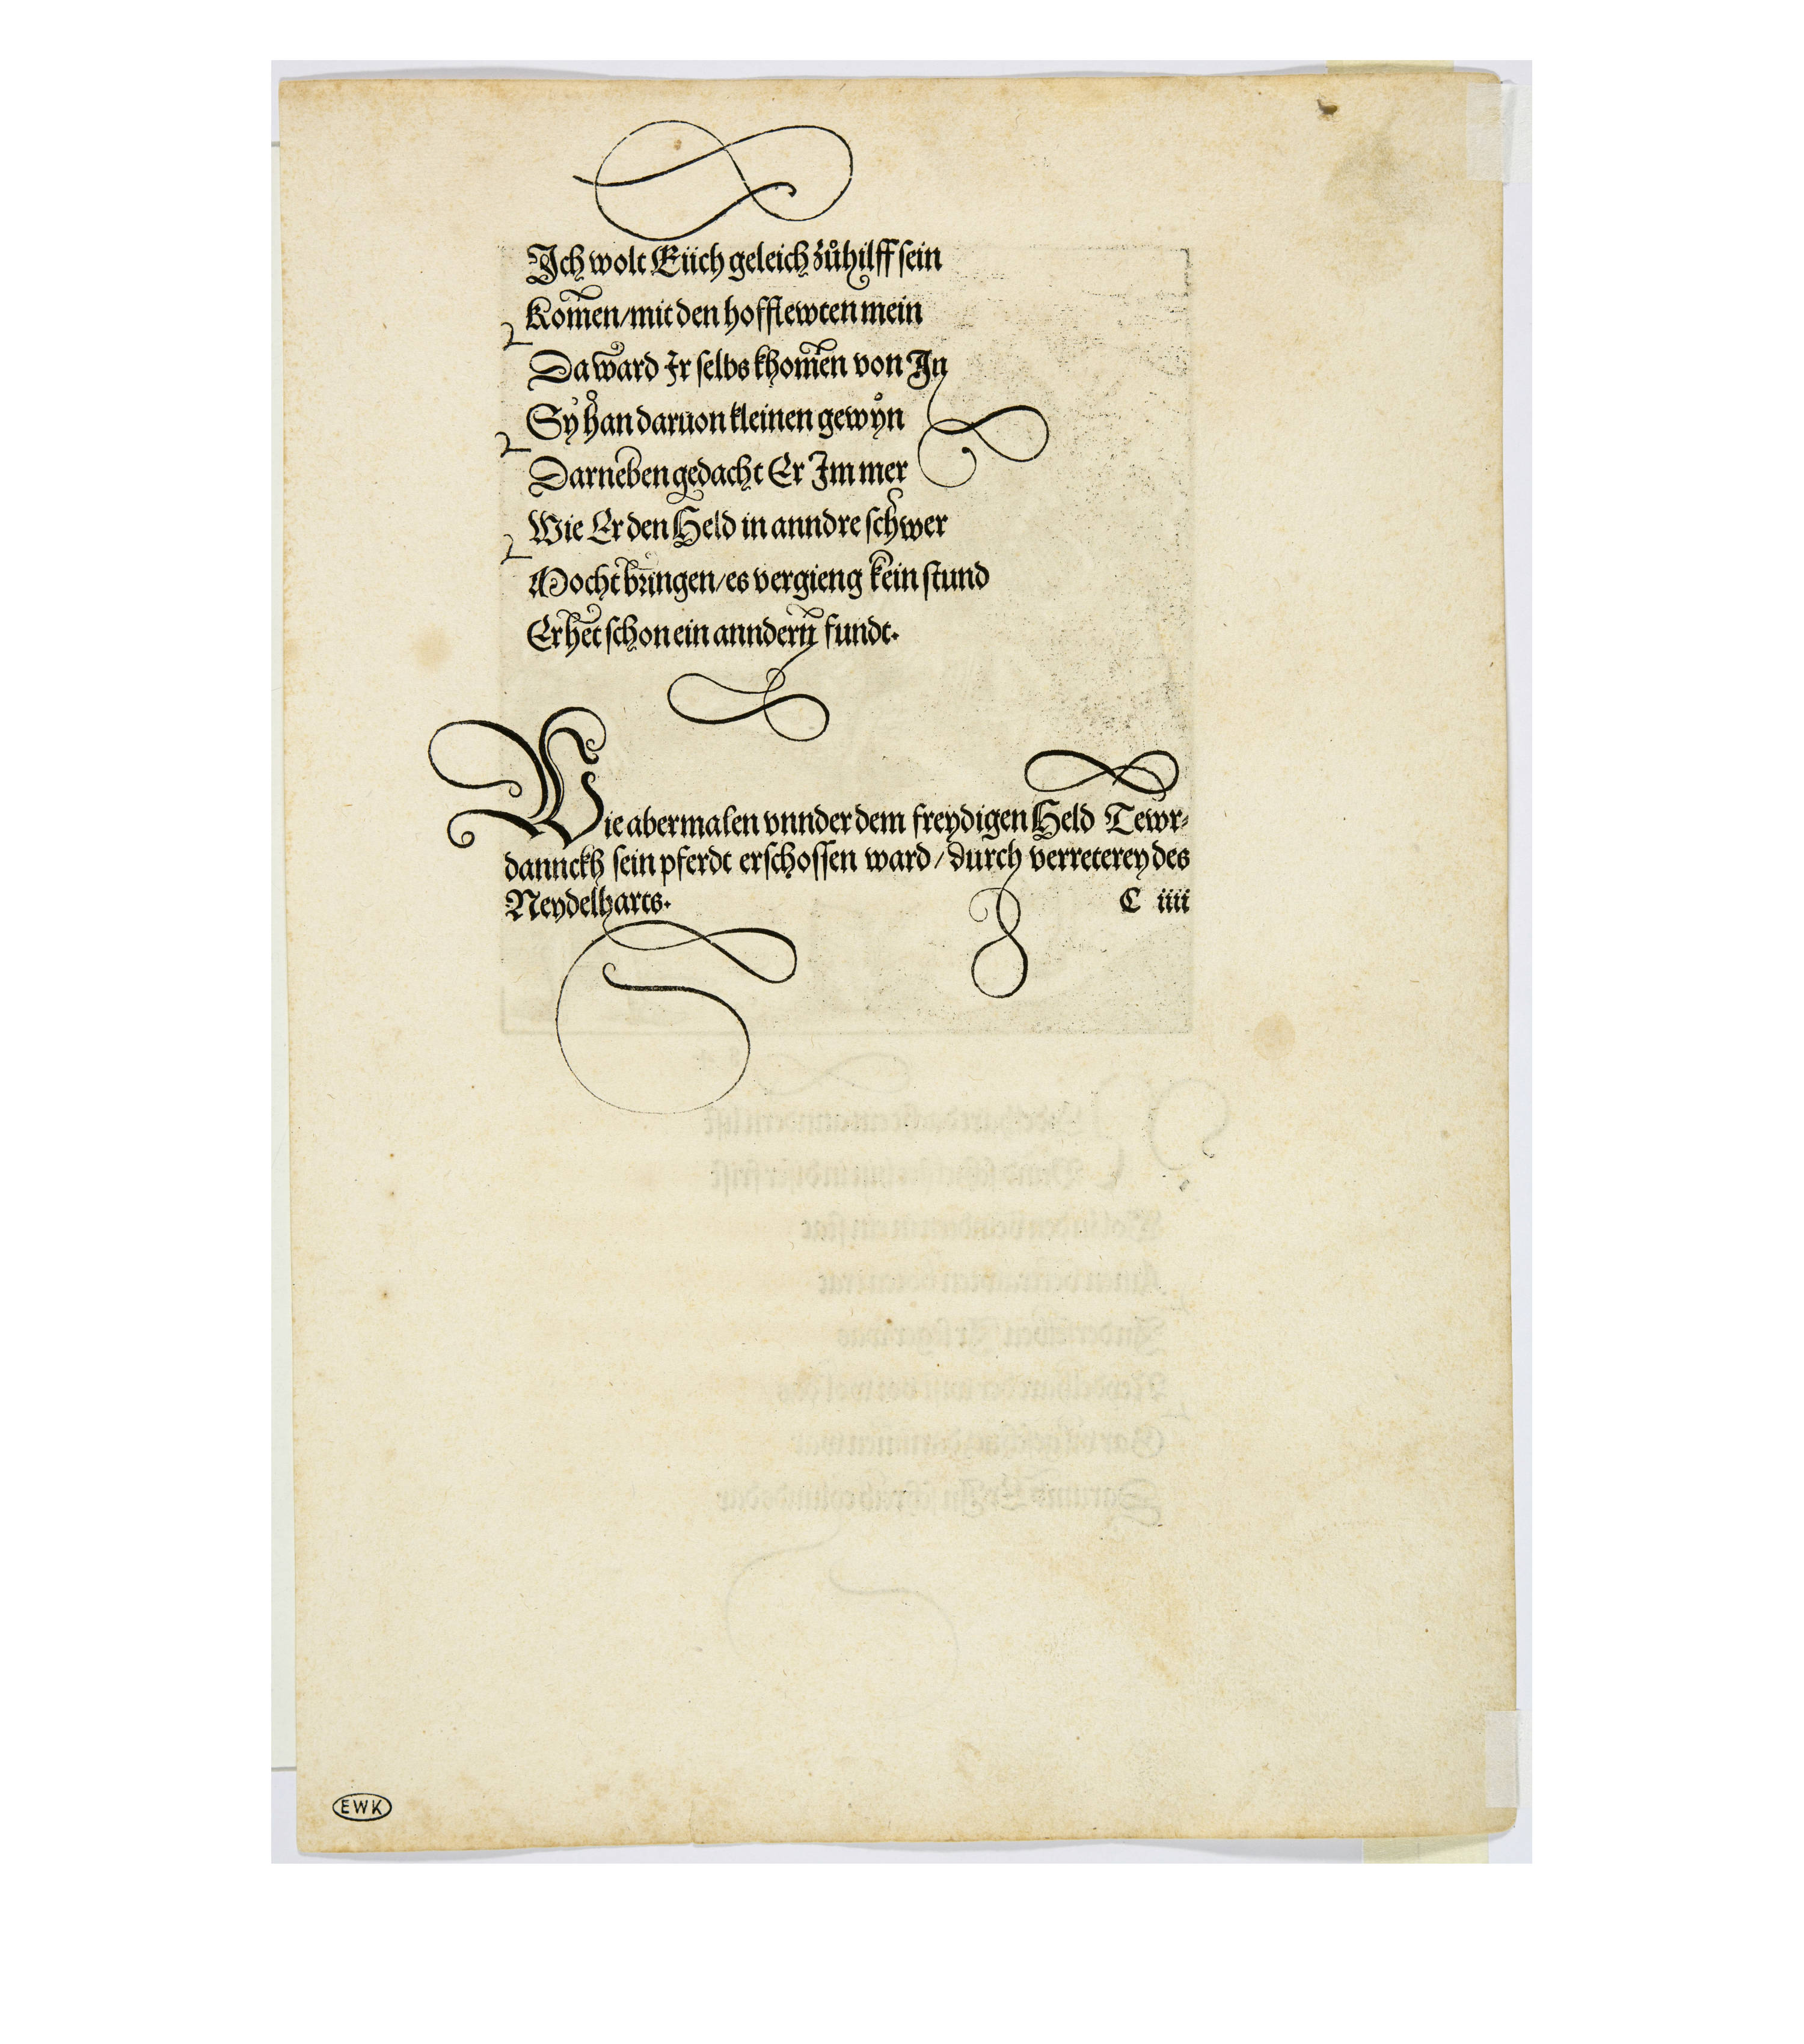 Ich wolt Eüch geleich zůhilff sein
Kom̃en/mit den hofflewten mein
Da ward Ir selbs khom̃en von In
Sy han daruon kleinen gewyn
Darneben gedacht Er Im mer
Wie Er den Held in anndre schwer
Mocht bringen/es vergieng kein stund
Er het schon ein anndern fundt.
Wie abermalen vnnder dem freydigen Held Tewr-
dannckh sein pferdt erschossen ward/durch verreterey des
Neydelharts. C iiii
EWK